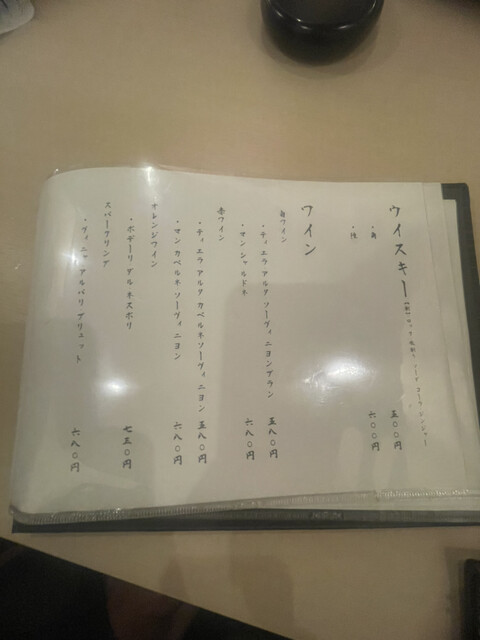 ウイスキー【割】ロック 水割り ソーダ コーラ ジンジャー
・角 五〇〇円
六〇〇円
ワイン
白ワイン
・ティエラ アルタ ソーヴィニヨンブラン 五八〇円
・マン シャルドネ 六八〇円
赤ワイン
・ティエラ アルタ カベルネソーヴィニヨン 五八〇円
・マン カベルネ ソーヴィニヨン 六八〇円
オレンジワイン
・ボデーリ デル ネスポリ 七三〇円
スパークリング
・ヴィニャ アルバリ ブリュット 六八〇円